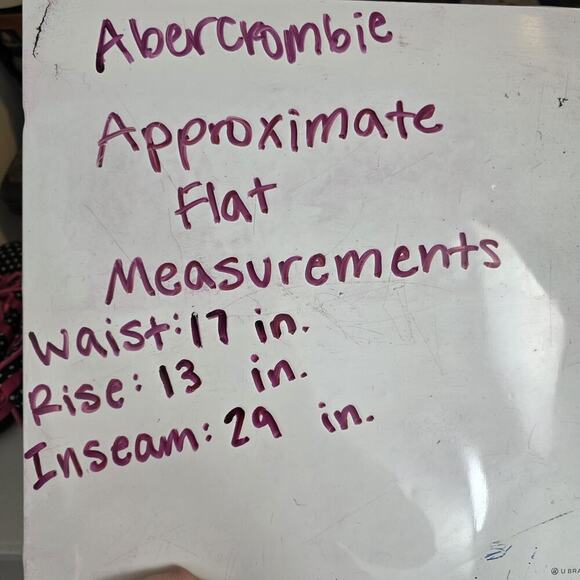 Abercrombie
Approximate
Flat
Measurements
Waist: 17 in.
Rise: 13 in.
Inseam: 29 in.
U BRA